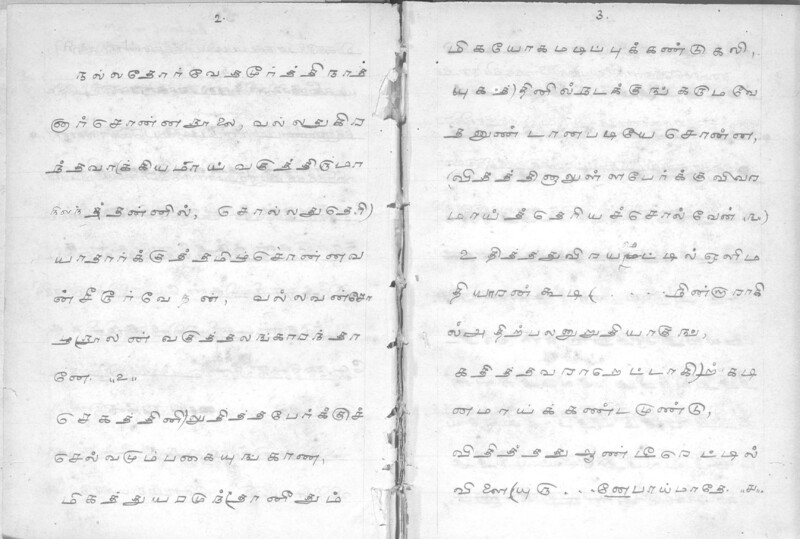 2.
நல்லதோர்வேதமூர்த்திநாத
னார்சொன்னநூலை, வல்லதுகிர
ந்தவாக்கியமாய் வகுத்திடுமா
த்தன்னில், சொல்லதுதெரி)
யாதார்க்குத்தமிழ்சொன்னவ
ன்சீர்வேதன, வல்லவன்சோ
ழநூலன் வகுத்தலங்காரந்தா
னே. ௨
செகத்தினி)லுதித்தபேர்க்குச்
செல்வமும்பகையுங்காண,
மிகத்துயரமுந்(தானிதும்
3.
மிகயோகமடிப்புக்கண்டுகலி,
(யுகத்)தினில்நடக்குங்கருமவே
தனுண்டானபடியேசொன்ன,
(விதத்தினாலுள்ளபேர்க்குவிவர
மாய்த்தெரியச்சொல்வேன் ௩)
உதித்ததுவிரயமீட்டில்ஒளிம
தியரன்கூடி(. . . . நின்றாகி
ல்அதிற்பலனுறுதியாகு
கதித்தவராறெட்டாகி)ற்கடி
னமாய்க்கண்டமுண்டு,
விதித்தது ஆண்டீரெட்டில்
விளை(யு . . .னேபாய்மாதே ௪